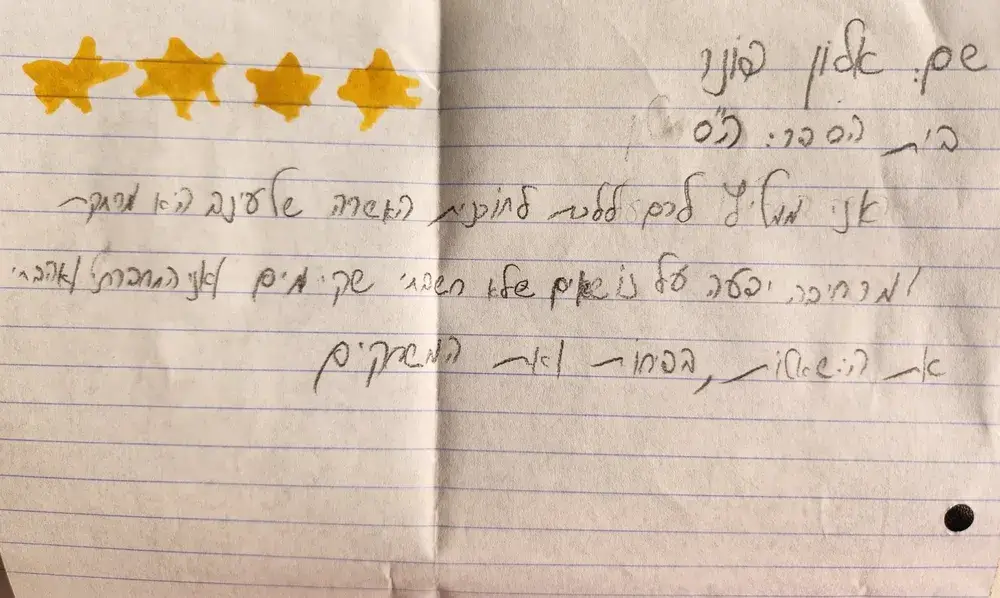 שם: אלון פונו
בית הספר: הס
אני ממליץ לכם ללכת לתוכנית העשרה של עינב היא מרתקת
ומרחיבה ידעה על נושאים שלא חשבתי שקימים ואני התחברתי ואהבתי
את השאלות, בדיחות ואת המשחקים